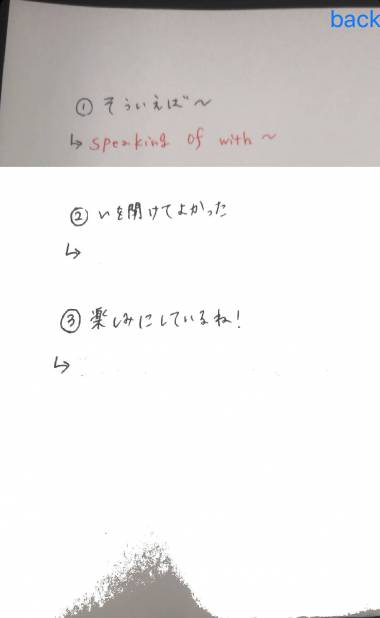 back
① そういえば〜
↳ speaking of with ~
② いを開けてよかった
↳
③ 楽しみにしているね!
↳